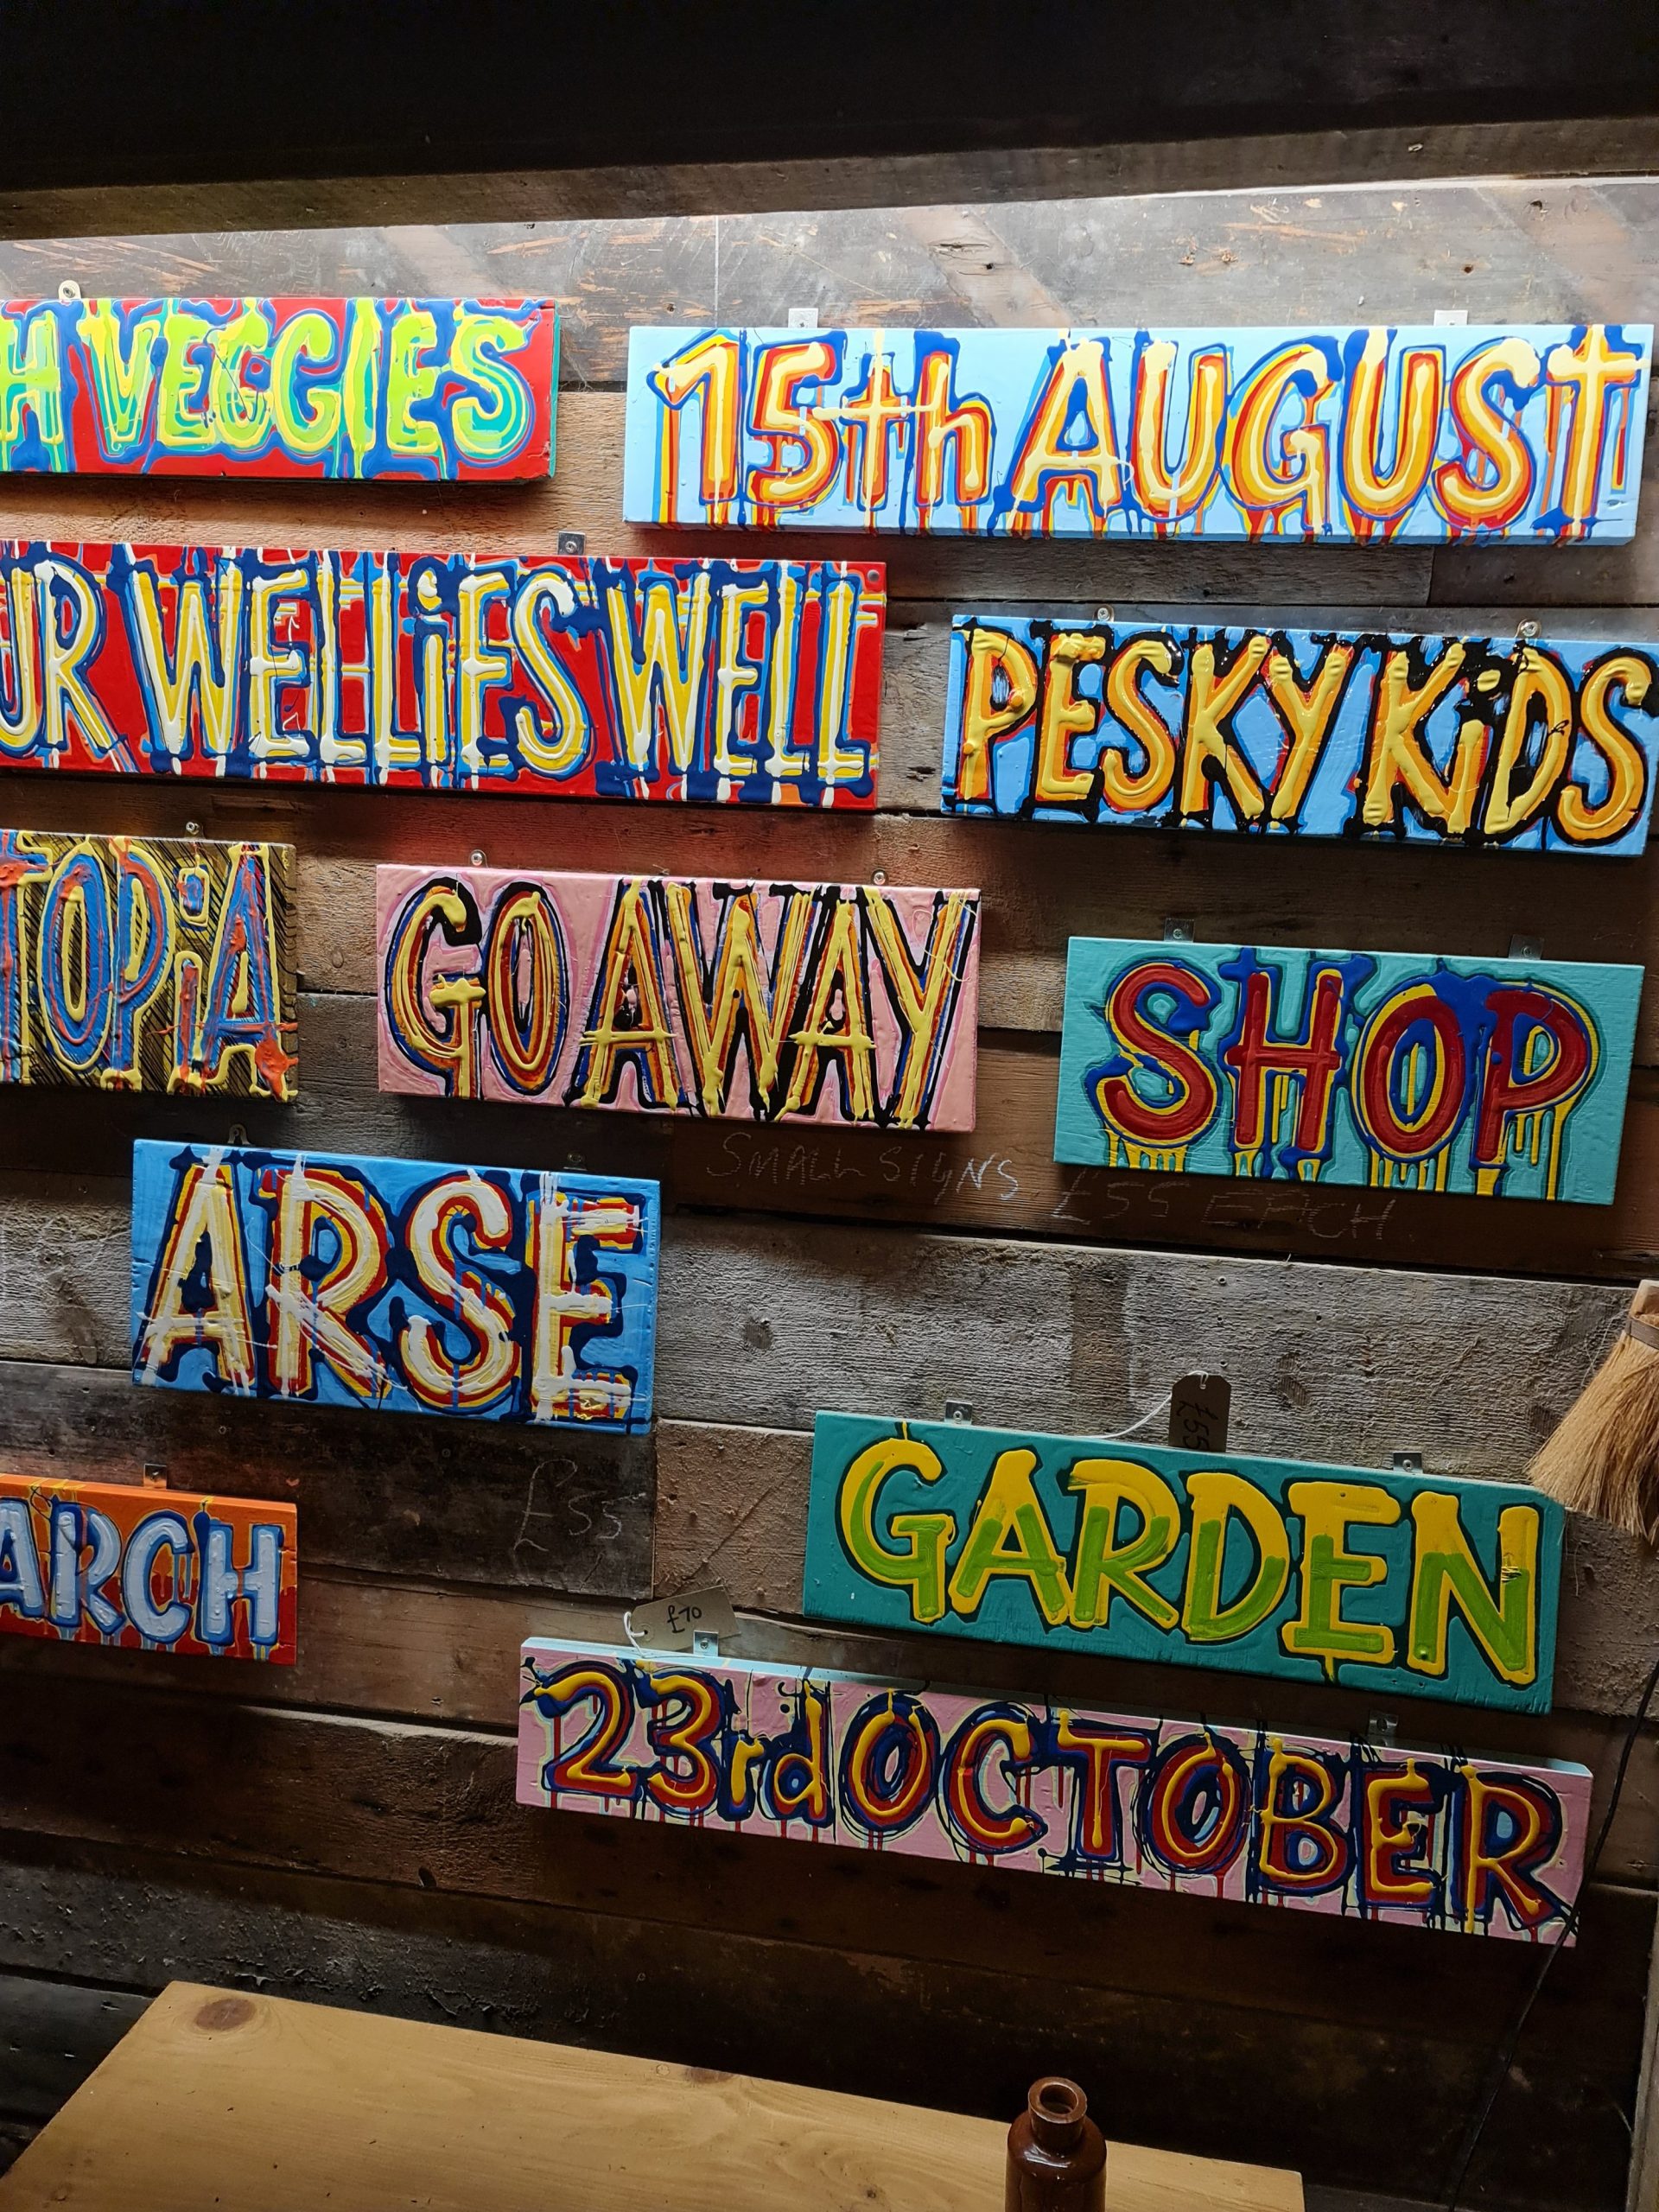 H VEGGIES
15th AUGUST
UR WELLiES WELL
PESKY KiDS
TOPiA
GO AWAY
SHOP
SMALL SIGNS
£55 EACH
ARSE
£55
GARDEN
£55
ARCH
£70
23rd OCTOBER